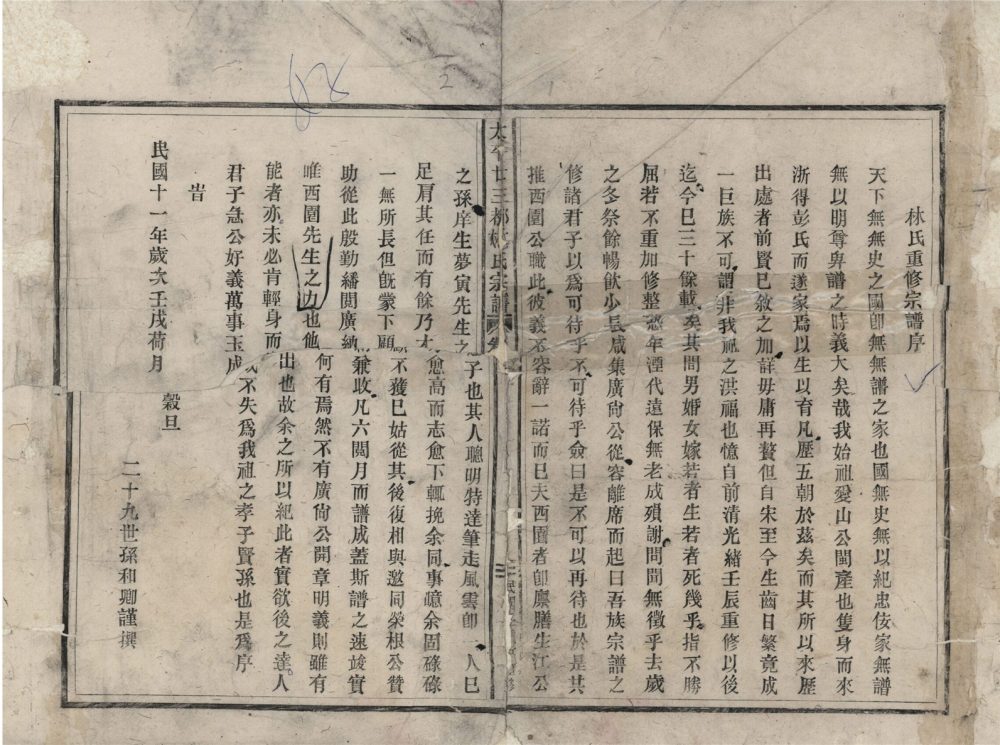 林氏重修宗譜序
天下無無史之國卽無無譜之家也國無史無以紀忠侫家無譜
無以明尊卑譜之時義大矣哉我始祖愛山公閩產也隻身而來
浙得彭氏而遂家焉以生以育凡歷五朝於茲矣而其所以來歷
出處者前賢已敘之加詳毋庸再贅但自宋至今生齒日繁竟成
一巨族不可謂非我祖之洪福也憶自前清光緒壬辰重修以後
迄今已三十餘載矣其間男婚女嫁若者生若者死幾乎指不勝
屈若不重加修整恐年湮代遠保無老成殞謝問聞無徵乎去歲
之冬祭餘暢飲少長咸集廣尙公從容離席而起曰吾族宗譜之
修諸君子以爲可待乎不可待乎僉曰是不可以再待也於是共
推西園公職此彼義不容辭一諾而已夫西園者卽廩膳生江公
太平廿三都林氏宗譜
之孫庠生夢寅先生之子也其人聰明特達筆走風雲卽一人已
足肩其任而有餘乃才愈高而志愈下輒挽余同事噫余固碌碌
一無所長但旣蒙下顧不獲已姑從其後復相與邀同榮根公贊
助從此殷勤繙閱廣納兼收凡六閱月而譜成蓋斯譜之速竣實
唯西園先生之力也他何有焉然不有廣尙公開章明義則雖有
能者亦未必肯輕身而出也故余之所以紀此者實欲後之達人
君子急公好義萬事玉成不失爲我祖之孝子賢孫也是爲序
旹
民國十一年歲次壬戌荷月 穀旦
二十九世孫和卿謹撰